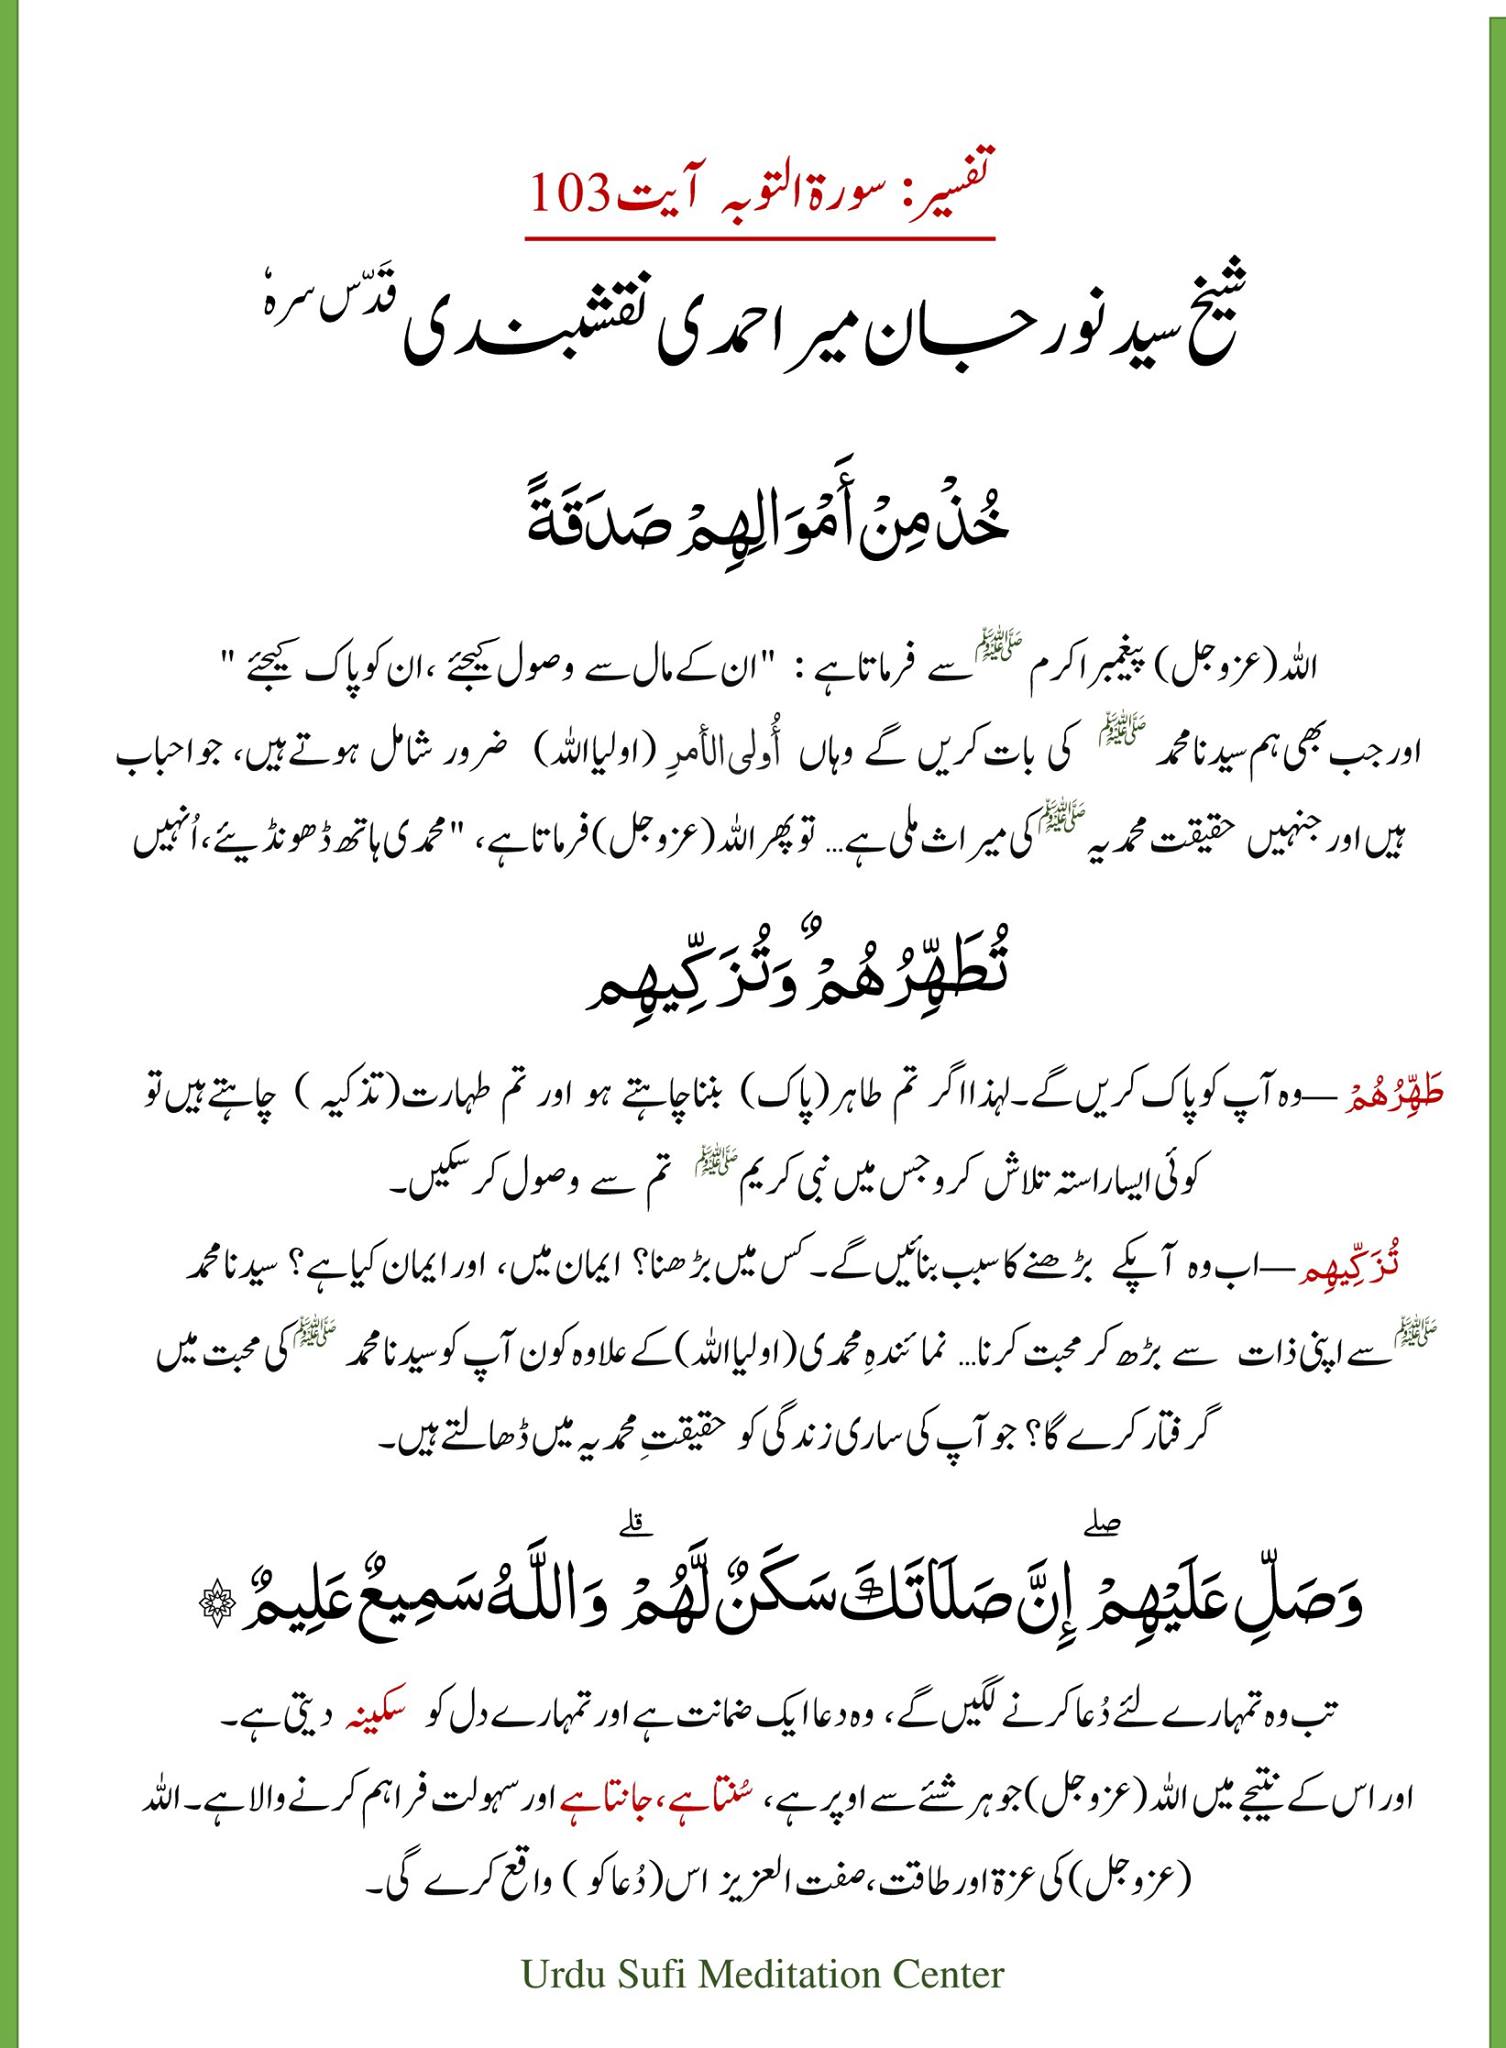 تفسیر: سورۃ التوبہ آیت 103
شیخ سید نور جان میر احمدی نقشبندی قدّس سرہٗ
خُذْ مِنْ أَمْوَالِهِمْ صَدَقَةً
اللہ (عزوجل) پیغمبر اکرم ﷺ سے فرماتا ہے : "ان کے مال سے وصول کیجئے ،ان کو پاک کیجئے "
اور جب بھی ہم سیدنا محمد ﷺ کی بات کریں گے وہاں أُولی الأمرِ (اولیا اللہ) ضرور شامل ہوتے ہیں، جو احباب
ہیں اور جنہیں حقیقت محمدیہ ﷺ کی میراث ملی ہے... تو پھر اللہ (عزوجل) فرماتا ہے، "محمدی ہاتھ ڈھونڈیئے، اُنہیں
تُطَهِّرُهُمْ وَتُزَكِّيهِم
طَهِّرُهُمْ —وہ آپ کو پاک کریں گے۔ لہذا اگر تم طاہر (پاک) بننا چاہتے ہو اور تم طہارت (تذکیہ ) چاہتے ہیں تو
کوئی ایسا راستہ تلاش کرو جس میں نبی کریم ﷺ تم سے وصول کر سکیں۔
تُزَكِّيهِم —اب وہ آپکے بڑھنے کا سبب بنائیں گے۔ کس میں بڑھنا؟ ایمان میں، اور ایمان کیا ہے؟ سیدنا محمد
ﷺ سے اپنی ذات سے بڑھ کر محبت کرنا... نمائندہِ محمدی (اولیا اللہ) کے علاوہ کون آپ کو سیدنا محمد ﷺ کی محبت میں
گرفتار کرے گا؟ جو آپ کی ساری زندگی کو حقیقتِ محمدیہ میں ڈھالتے ہیں۔
وَصَلِّ عَلَيْهِمْ ۖ إِنَّ صَلَاتَكَ سَكَنٌ لَّهُمْ ۗ وَاللَّهُ سَمِيعٌ عَلِيمٌ ۞
تب وہ تمہارے لئے دُعا کرنے لگیں گے، وہ دعا ایک ضمانت ہے اور تمہارے دل کو سکینہ دیتی ہے۔
اور اس کے نتیجے میں اللہ (عزوجل) جو ہر شئے سے اوپر ہے، سُنتا ہے، جانتا ہے اور سہولت فراہم کرنے والا ہے۔ اللہ
(عزوجل) کی عزۃ اور طاقت، صفت العزیز اس (دُعا کو ) واقع کرے گی۔
Urdu Sufi Meditation Center